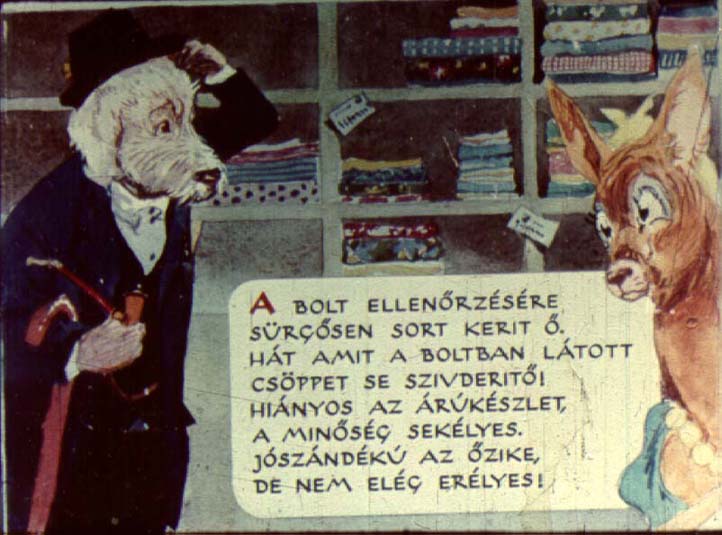 A BOLT ELLENŐRZÉSÉRE
SÜRGŐSEN SORT KERIT Ő.
HÁT AMIT A BOLTBAN LÁTOTT
CSÖPPET SE SZIVDERITŐ!
HIÁNYOS AZ ÁRÚKÉSZLET,
A MINŐSÉG SEKÉLYES.
JÓSZÁNDÉKÚ AZ ŐZIKE,
DE NEM ELÉG ERÉLYES!